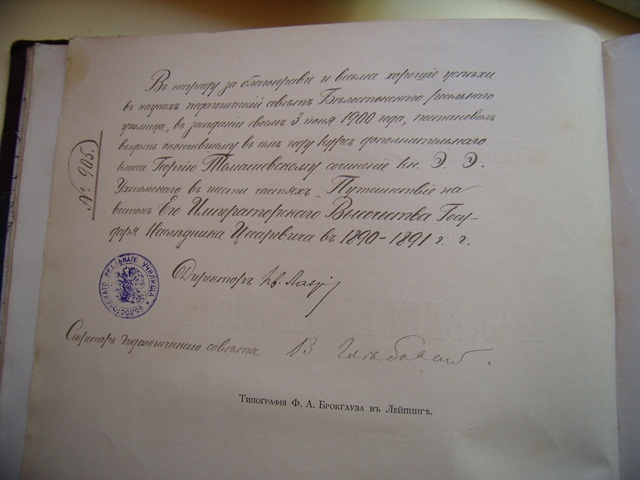 Въ награду за благонравіе и весьма хорошіе успѣхи
въ наукахъ педагогическій совѣтъ Бѣлостокскаго реальнаго
училища, въ засѣданіи своемъ 3 іюня 1900 года, постановилъ
выдать окончившему въ семъ году курсъ дополнительнаго
класса Георгію Томашевскому сочиненіе кн. Э. Э.
Ухтомскаго въ шести частяхъ „Путешествіе на
востокъ Его Императорскаго Высочества Госу-
даря Наслѣдника Цесаревича въ 1890-1891 г. г.
№ 905.
Директоръ
Секретарь педагогическаго совѣта В
Типографія Ф. А. Брокгауза въ Лейпцигѣ.